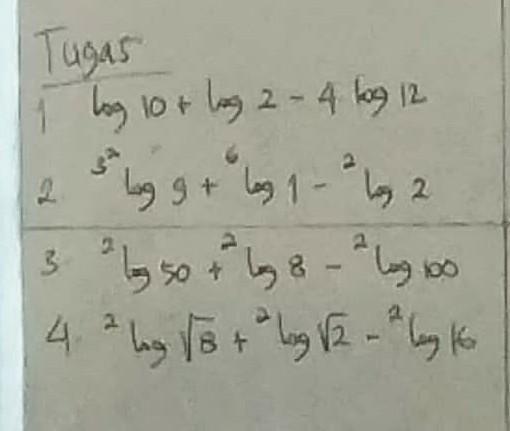 Tugas
1 log 10 + log 2 - 4 log 12
2 3² log 9 + ⁶log 1 - ²log 2
3 ²log 50 + ²log 8 - ²log 100
4. ²log √8 + ²log √2 - ²log 16